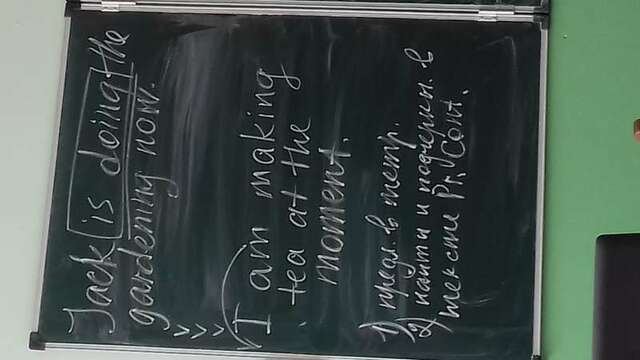 Jack is doing the
gardening now.
I am making
tea at the
moment.
1) предл. в тетр.
2) найти и подчеркн. в
тексте Pr. Cont.